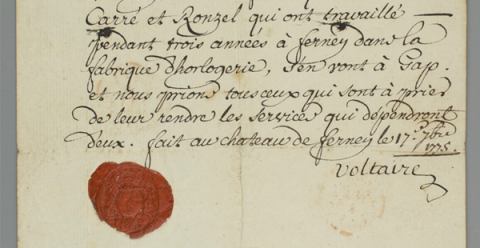 Carré et Ronzel qui ont travaillé
pendant trois années à ferney dans la
fabrique d'horlogerie, s'en vont à Gap.
et nous prions tous ceux qui sont à prier
de leur rendre les services qui dépendront
d'eux. fait au chateau de ferney le 17e 7bre
1775.
Voltaire